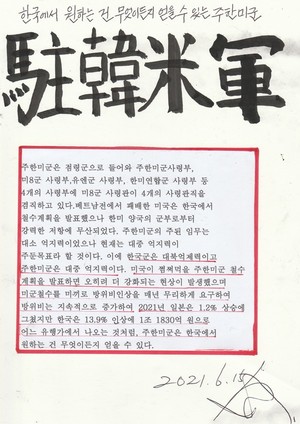 한국에서 원하는 건 무엇이든지 얻을 수 있는 주한미군
駐韓米軍
주한미군은 점령군으로 들어와 주한미군사령부,
미8군 사령부, 유엔군 사령부, 한미연합군 사령부 등
4개의 사령부에 미8군 사령관이 4개의 사령관직을
겸직하고 있다. 베트남전에서 패배한 미국은 한국에서
철수계획을 발표했으나 한미 양국의 군부로부터
강력한 저항에 무산되었다. 주한미군의 주된 임무는
대소 억지력이었으나 현재는 대중 억지력이
주둔목표라 할 것이다. 이에 한국군은 대북억제력이고
주한미군은 대중 억지력이다. 미국이 썸쩍떡을 주한미군 철수
계획을 발표하면 오히려 더 강화되는 현상이 발생했으며
미군철수를 미끼로 방위비인상을 매년 무리하게 요구하여
방위비는 지속적으로 증가하여 2021년 일본은 1.2% 상승에
그쳤지만 한국은 13.9% 인상에 1조 1830억 원으로
어느 유행가에서 나오는 것처럼, 주한미군은 한국에서
원하는 건 무엇이든지 얻을 수 있다.
2021.6.15